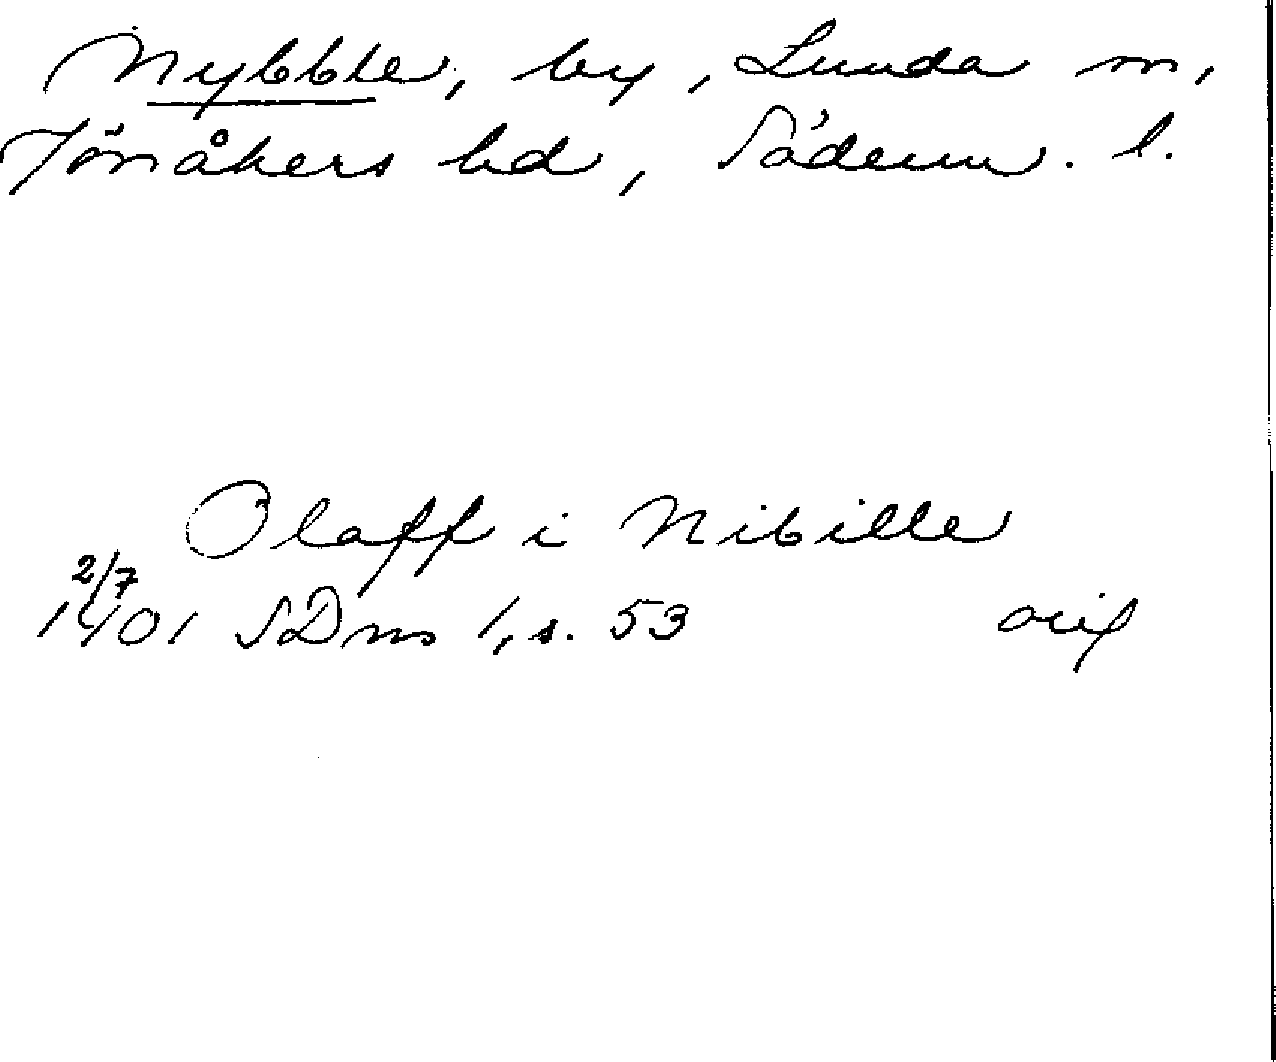 Nybble, by, Lunda sn,
Jönåkers hd, Söderm. l.
Olaff i Nibille
2/7
1401 SDns 1, s. 53 orig